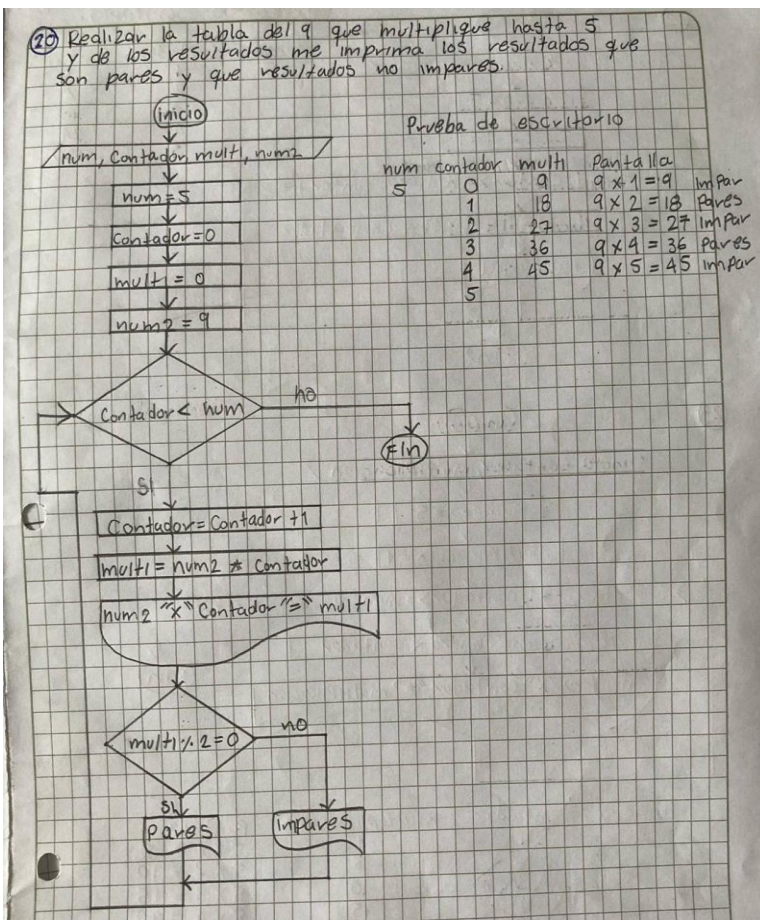 20 Realizar la tabla del 9 que multiplique hasta 5
y de los resultados me imprima los resultados que
son pares y que resultados no impares.
inicio
num, contador, multi, num2
num=5
contador=0
multi = 0
num2 = 9
Contador < num
no
Fin
Si
Contador = Contador +1
multi = num2 * Contador
num2 "x" Contador "=" multi
multi % 2 = 0
no
Si
Pares
Impares
Prueba de escritorio
num contador multi Pantalla
5 0 9 9 x 1 = 9 Impar
1 18 9 x 2 = 18 Pares
2 27 9 x 3 = 27 Impar
3 36 9 x 4 = 36 Pares
4 45 9 x 5 = 45 Impar
5